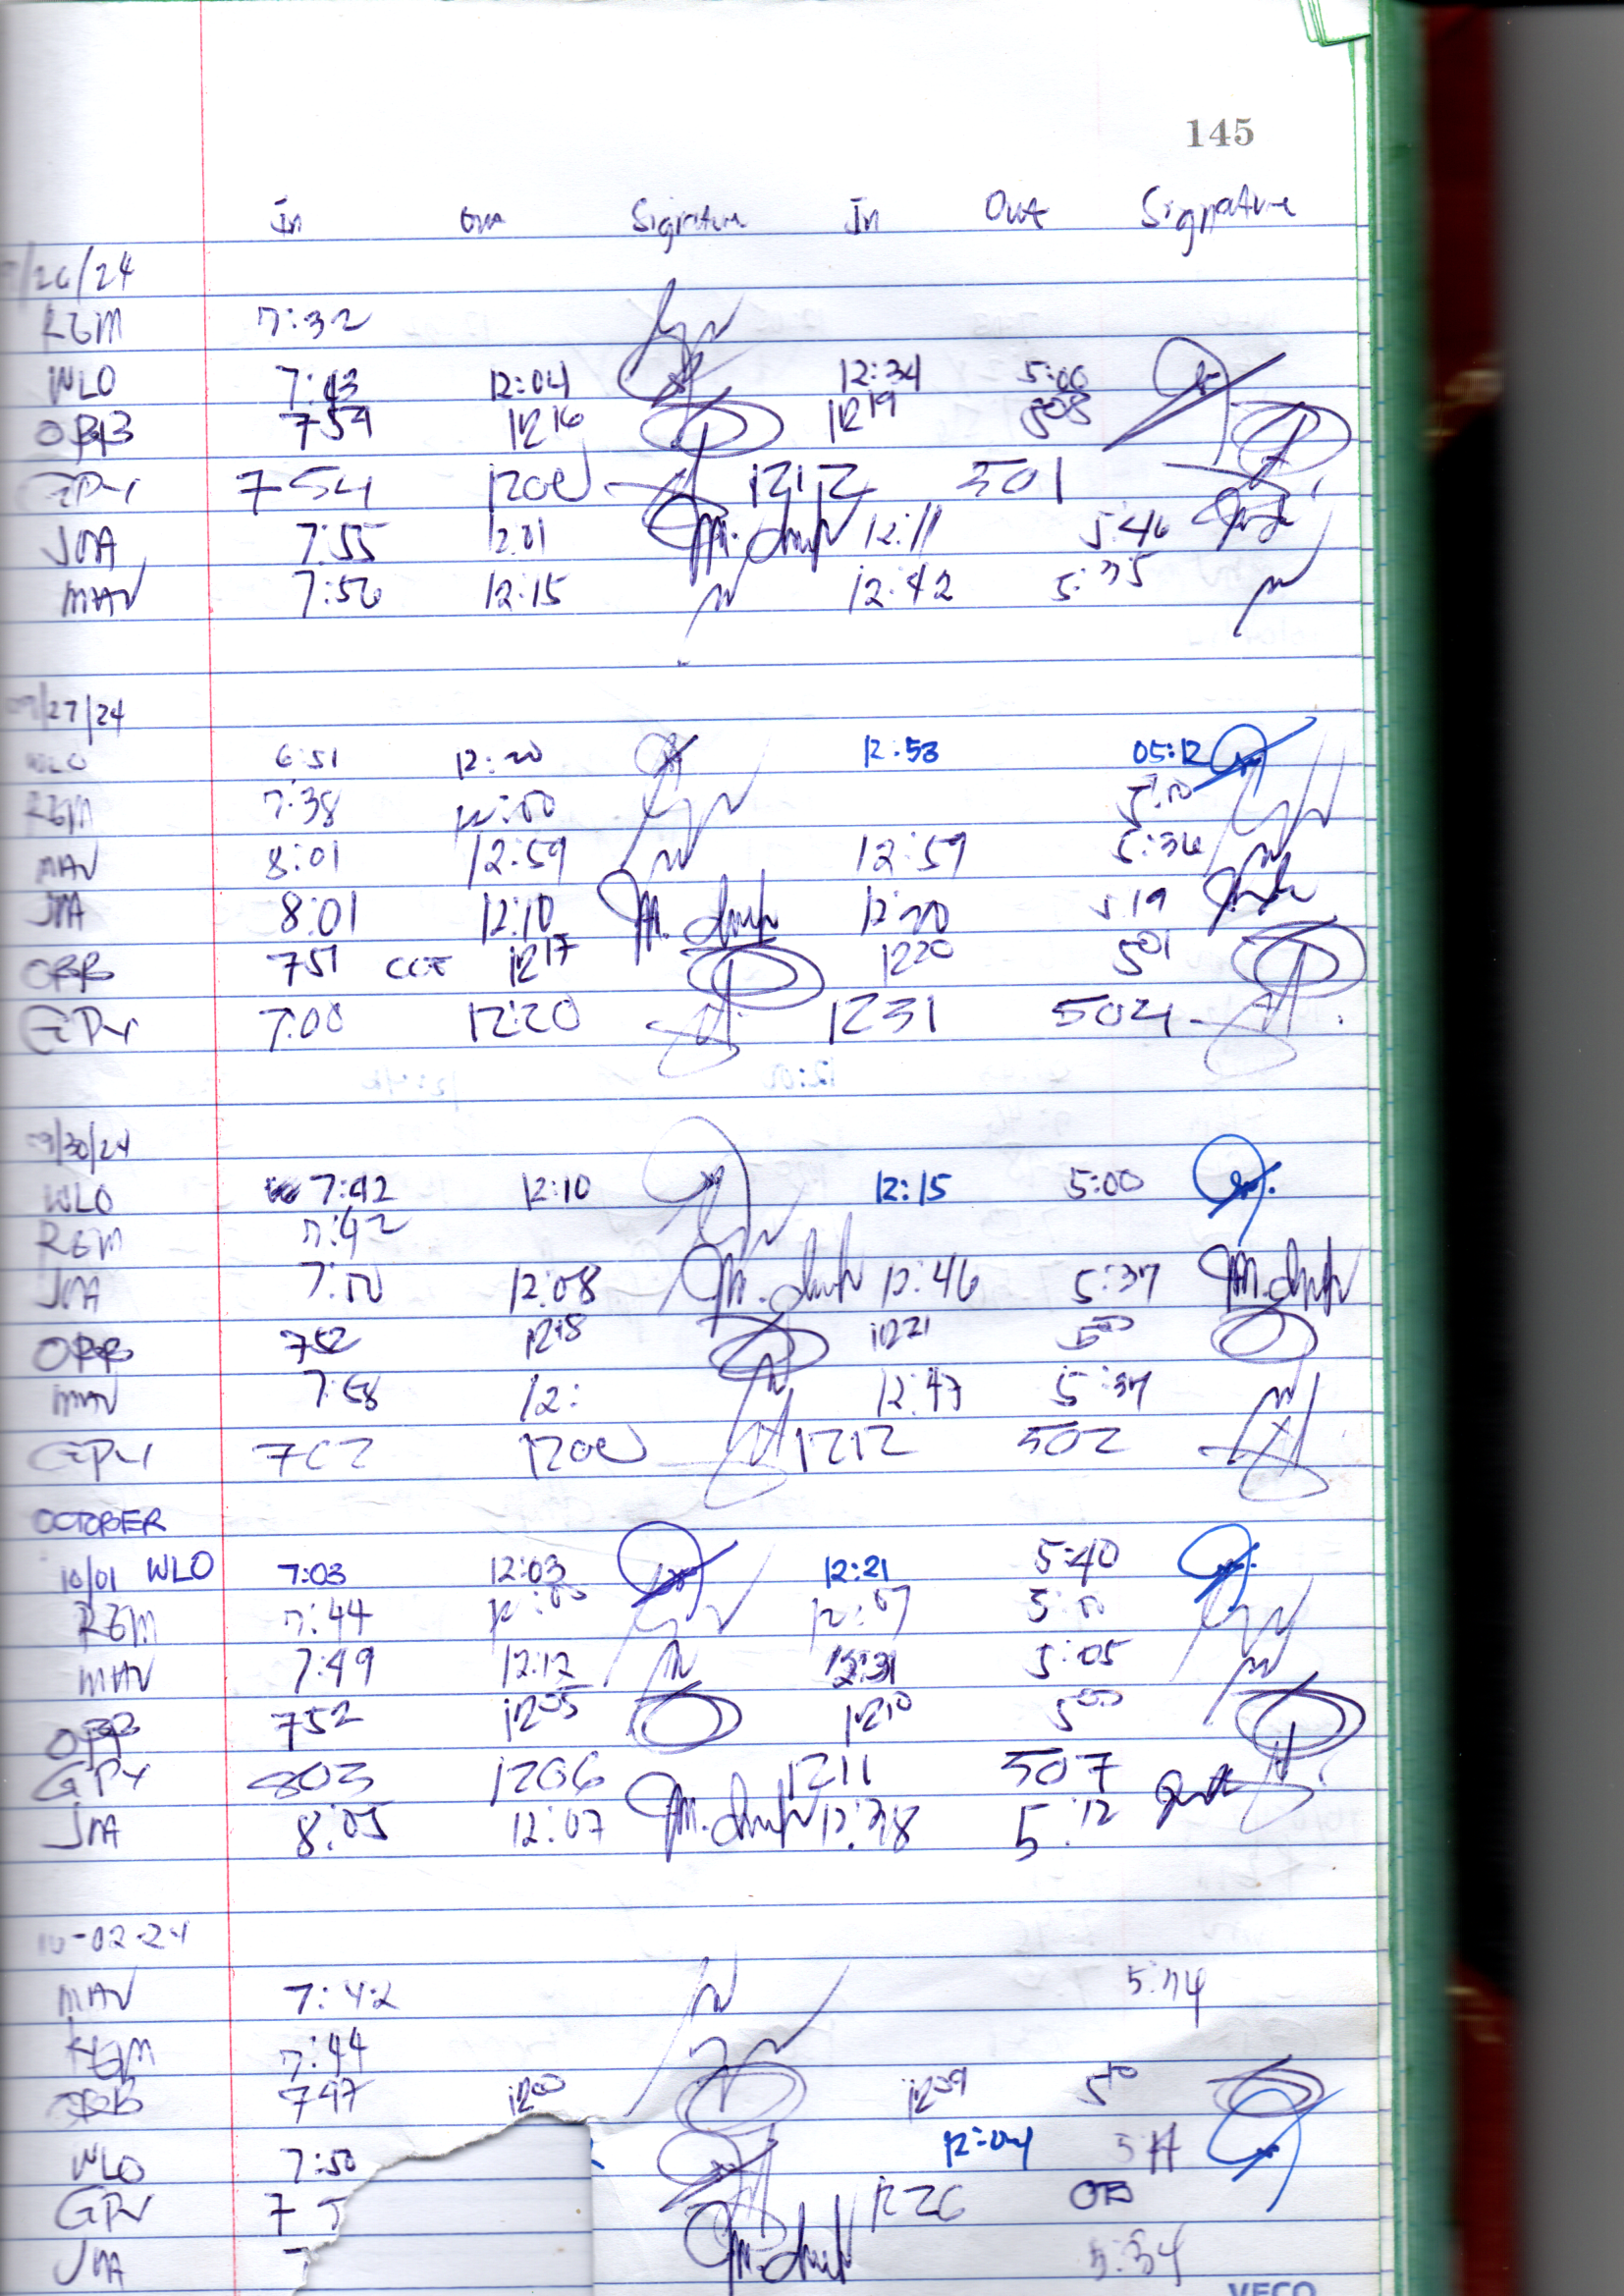 145
In Out Signature In Out Signature
/26/24
RGM 7:32
WLO 7:43 12:04 12:34 5:00
ORB 759 1216 1219 508
GPY 754 1200 1212 501
JMA 7:55 12:01 12:11 5:46
MAV 7:56 12:15 12:42 5:35
09/27/24
WLO 6:51 12:20 12:53 05:12
RGM 7:38 12:00 5:00
MAV 8:01 12:59 12:59 5:36
JMA 8:01 12:10 12:20 5:19
ORB 751 1217 1220 501
GPY 7:00 12:20 1231 504
09/30/24
WLO 7:42 12:10 12:15 5:00
RGM 7:42
JMA 7:50 12:08 12:46 5:37
ORB 752 1218 1221 500
MAV 7:58 12: 12:47 5:37
GPY 702 1200 1212 502
OCTOBER
10/01 WLO 7:03 12:03 12:21 5:40
RGM 7:44 12:00 12:07 5:00
MAV 7:49 12:12 12:31 5:05
ORB 752 1205 1210 500
GPY 803 1206 1211 507
JMA 8:05 12:07 12:38 5:12
10-02-24
MAV 7:42 5:34
RGM 7:44
ORB 747 1200 1209 510
WLO 7:50 12:04
GPY 7 1226
JMA 7 5:34
VECO